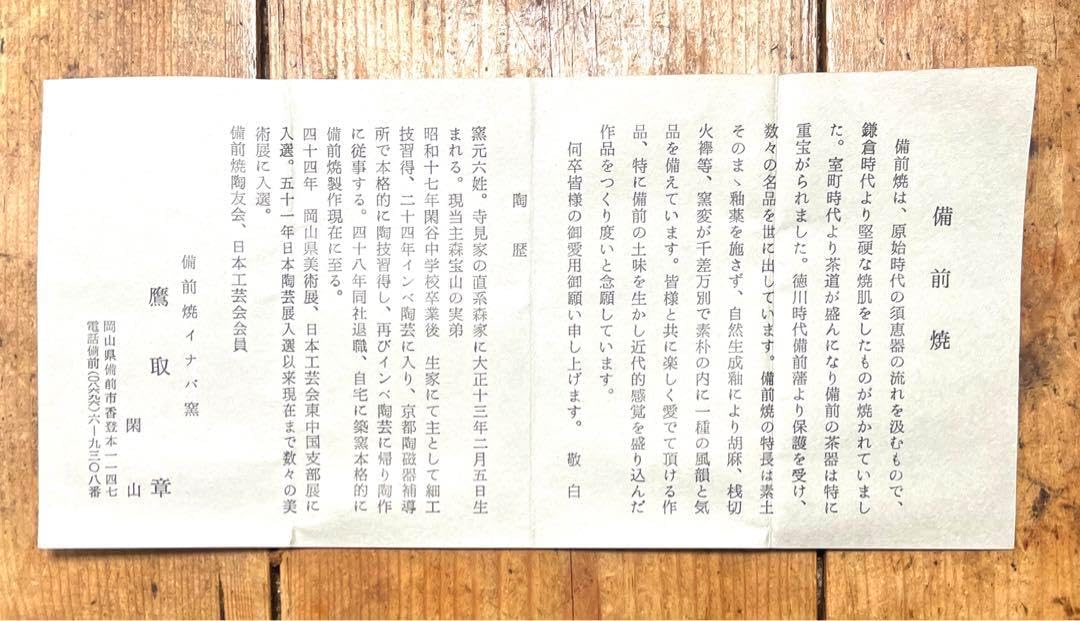 備前焼
備前焼は、原始時代の須恵器の流れを汲むもので、
鎌倉時代より堅硬な焼肌をしたものが焼かれていまし
た。室町時代より茶道が盛んになり備前の茶器は特に
重宝がられました。徳川時代備前藩より保護を受け、
数々の名品を世に出しています。備前焼の特長は素土
そのまゝ釉薬を施さず、自然生成釉により胡麻、桟切
火襷等、窯変が千差万別で素朴の内に一種の風韻と気
品を備えています。皆様と共に楽しく愛でて頂ける作
品、特に備前の土味を生かし近代的感覚を盛り込んだ
作品をつくり度いと念願しています。
何卒皆様の御愛用御願い申し上げます。 敬白
陶歴
窯元六姓。寺見家の直系森家に大正十三年二月五日生
まれる。現当主森宝山の実弟
昭和十七年閑谷中学校卒業後 生家にて主として細工
技習得、二十四年インベ陶芸に入り、京都陶磁器補導
所で本格的に陶技習得し、再びインベ陶芸に帰り陶作
に従事する。四十八年同社退職、自宅に築窯本格的に
備前焼製作現在に至る。
四十四年 岡山県美術展、日本工芸会東中国支部展に
入選。五十一年日本陶芸展入選以来現在まで数々の美
術展に入選。
備前焼陶友会、日本工芸会会員
備前焼イナバ窯
鷹取 章
閑山
岡山県備前市香登本一一四七
電話備前(〇八六九六)六―九三〇八番